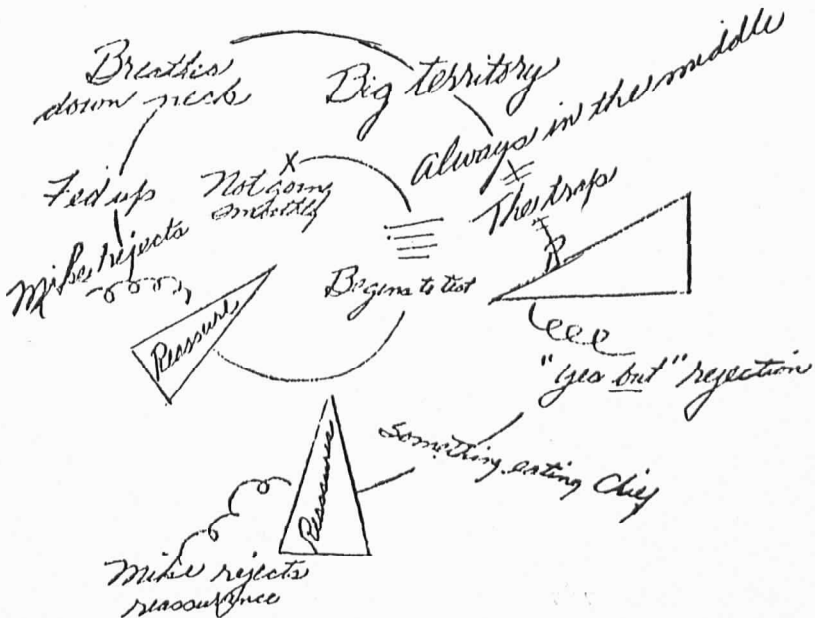 Breathes
down neck
Big territory
always in the middle
Fed up
Not going
smoothly
The trap
Mike rejects
R
Begins to test
Reassure
"yes but" rejection
Something eating Chief
Reassures
Mike rejects
reassurance